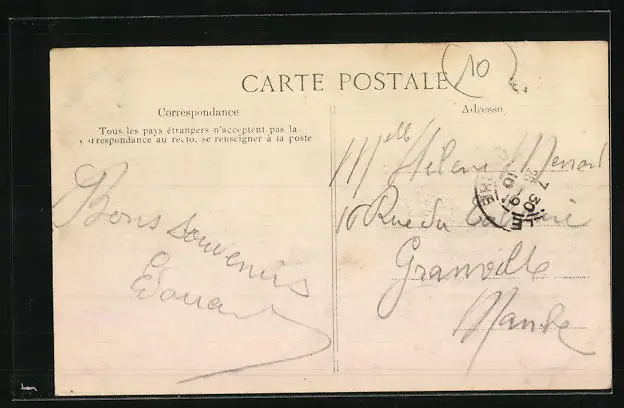 10
CARTE POSTALE
Correspondance
Tous les pays étrangers n'acceptent pas la
correspondance au recto, se renseigner à la poste
Adresse
Bons souvenirs
Edouard
Melle Hélène Menard
10 Rue du
Granville
Manche
7 30